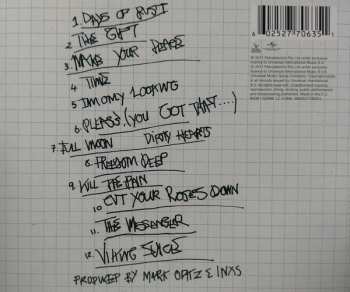 1. DAYS OF RUST
2. THE GIFT
3. MAKE YOUR PEACE
4. TIME
5. I'M ONLY LOOKING
6. PLEASE (YOU GOT THAT....)
7. FULL MOON DIRTY HEARTS
8. FREEDOM DEEP
9. KILL THE PAIN
10. CUT YOUR ROSES DOWN
11. THE MESSENGER
12. VIKING JUICE
PRODUCED BY MARK OPITZ & INXS
6 02527 70635